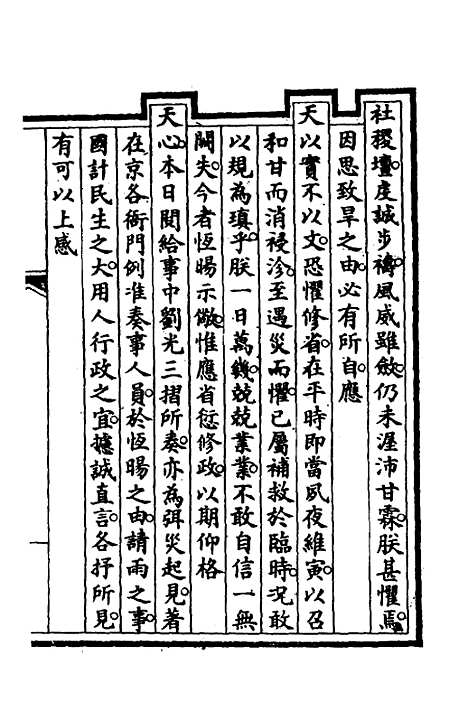 社稷壇虔誠步禱風威雖斂仍未渥沛甘霖朕甚懼焉
因思致旱之由必有所自應
天以實不以文恐懼修省在平時即當夙夜維寅以召
和甘而消祲沴至遇災而懼已屬補救於臨時況敢
以規為瑱乎朕一日萬幾兢兢業業不敢自信一無
闕失今者恆暘示儆惟應省愆修政以期仰格
天心本日閱給事中劉光三摺所奏亦為弭災起見著
在京各衙門例准奏事人員於恆暘之由請雨之事
國計民生之大用人行政之宜攄誠直言各抒所見
有可以上感